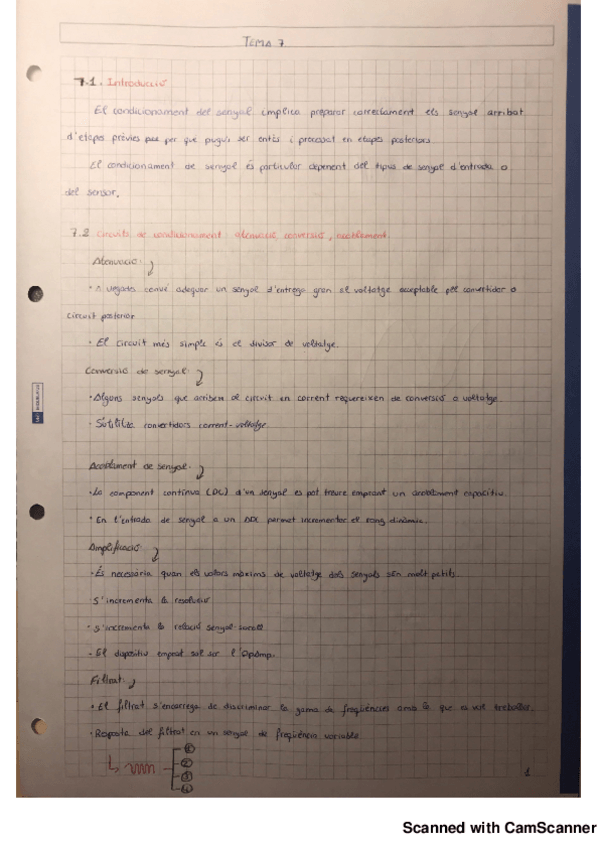 TEMA 7
7.1. Introducció
El condicionament del senyal implica preparar correctament els senyal arribat
d'etapes prèvies per què puguis ser entès i processat en etapes posteriors.
El condicionament de senyal és particular depenent del tipus de senyal d'entrada o
del sensor.
7.2 Circuits de condicionament: atenuació, conversió, acoblament.
Atenuació:
· A vegades convé adequar un senyal d'entrega gran al voltatge acceptable pel convertidor o
circuit posterior
· El circuit més simple és el divisor de voltatge.
Conversió de senyal:
· Alguns senyals que arriben al circuit en corrent requereixen de conversió a voltatge.
· S'utilitza convertidors corrent-voltatge
Acoblament de senyal.
· La component contínua (DC) d'un senyal es pot treure emprant un acoblament capacitiu.
· En l'entrada de senyal a un permet incrementar el rang dinàmic.
Amplificació:
· És necessària quan els valors màxims de voltatge dels senyals són molt petits.
S'incrementa la resolució
· S'incrementa la relació senyal-soroll
· El dispositiu emprat sol ser l'OpAmp.
Filtrat:
· El filtrat s'encarrega de discriminar la gama de freqüències amb la que es vol treballar.
· Resposta del filtrat en un senyal de freqüència variable.
1
2
3
4
1
Scanned with CamScanner